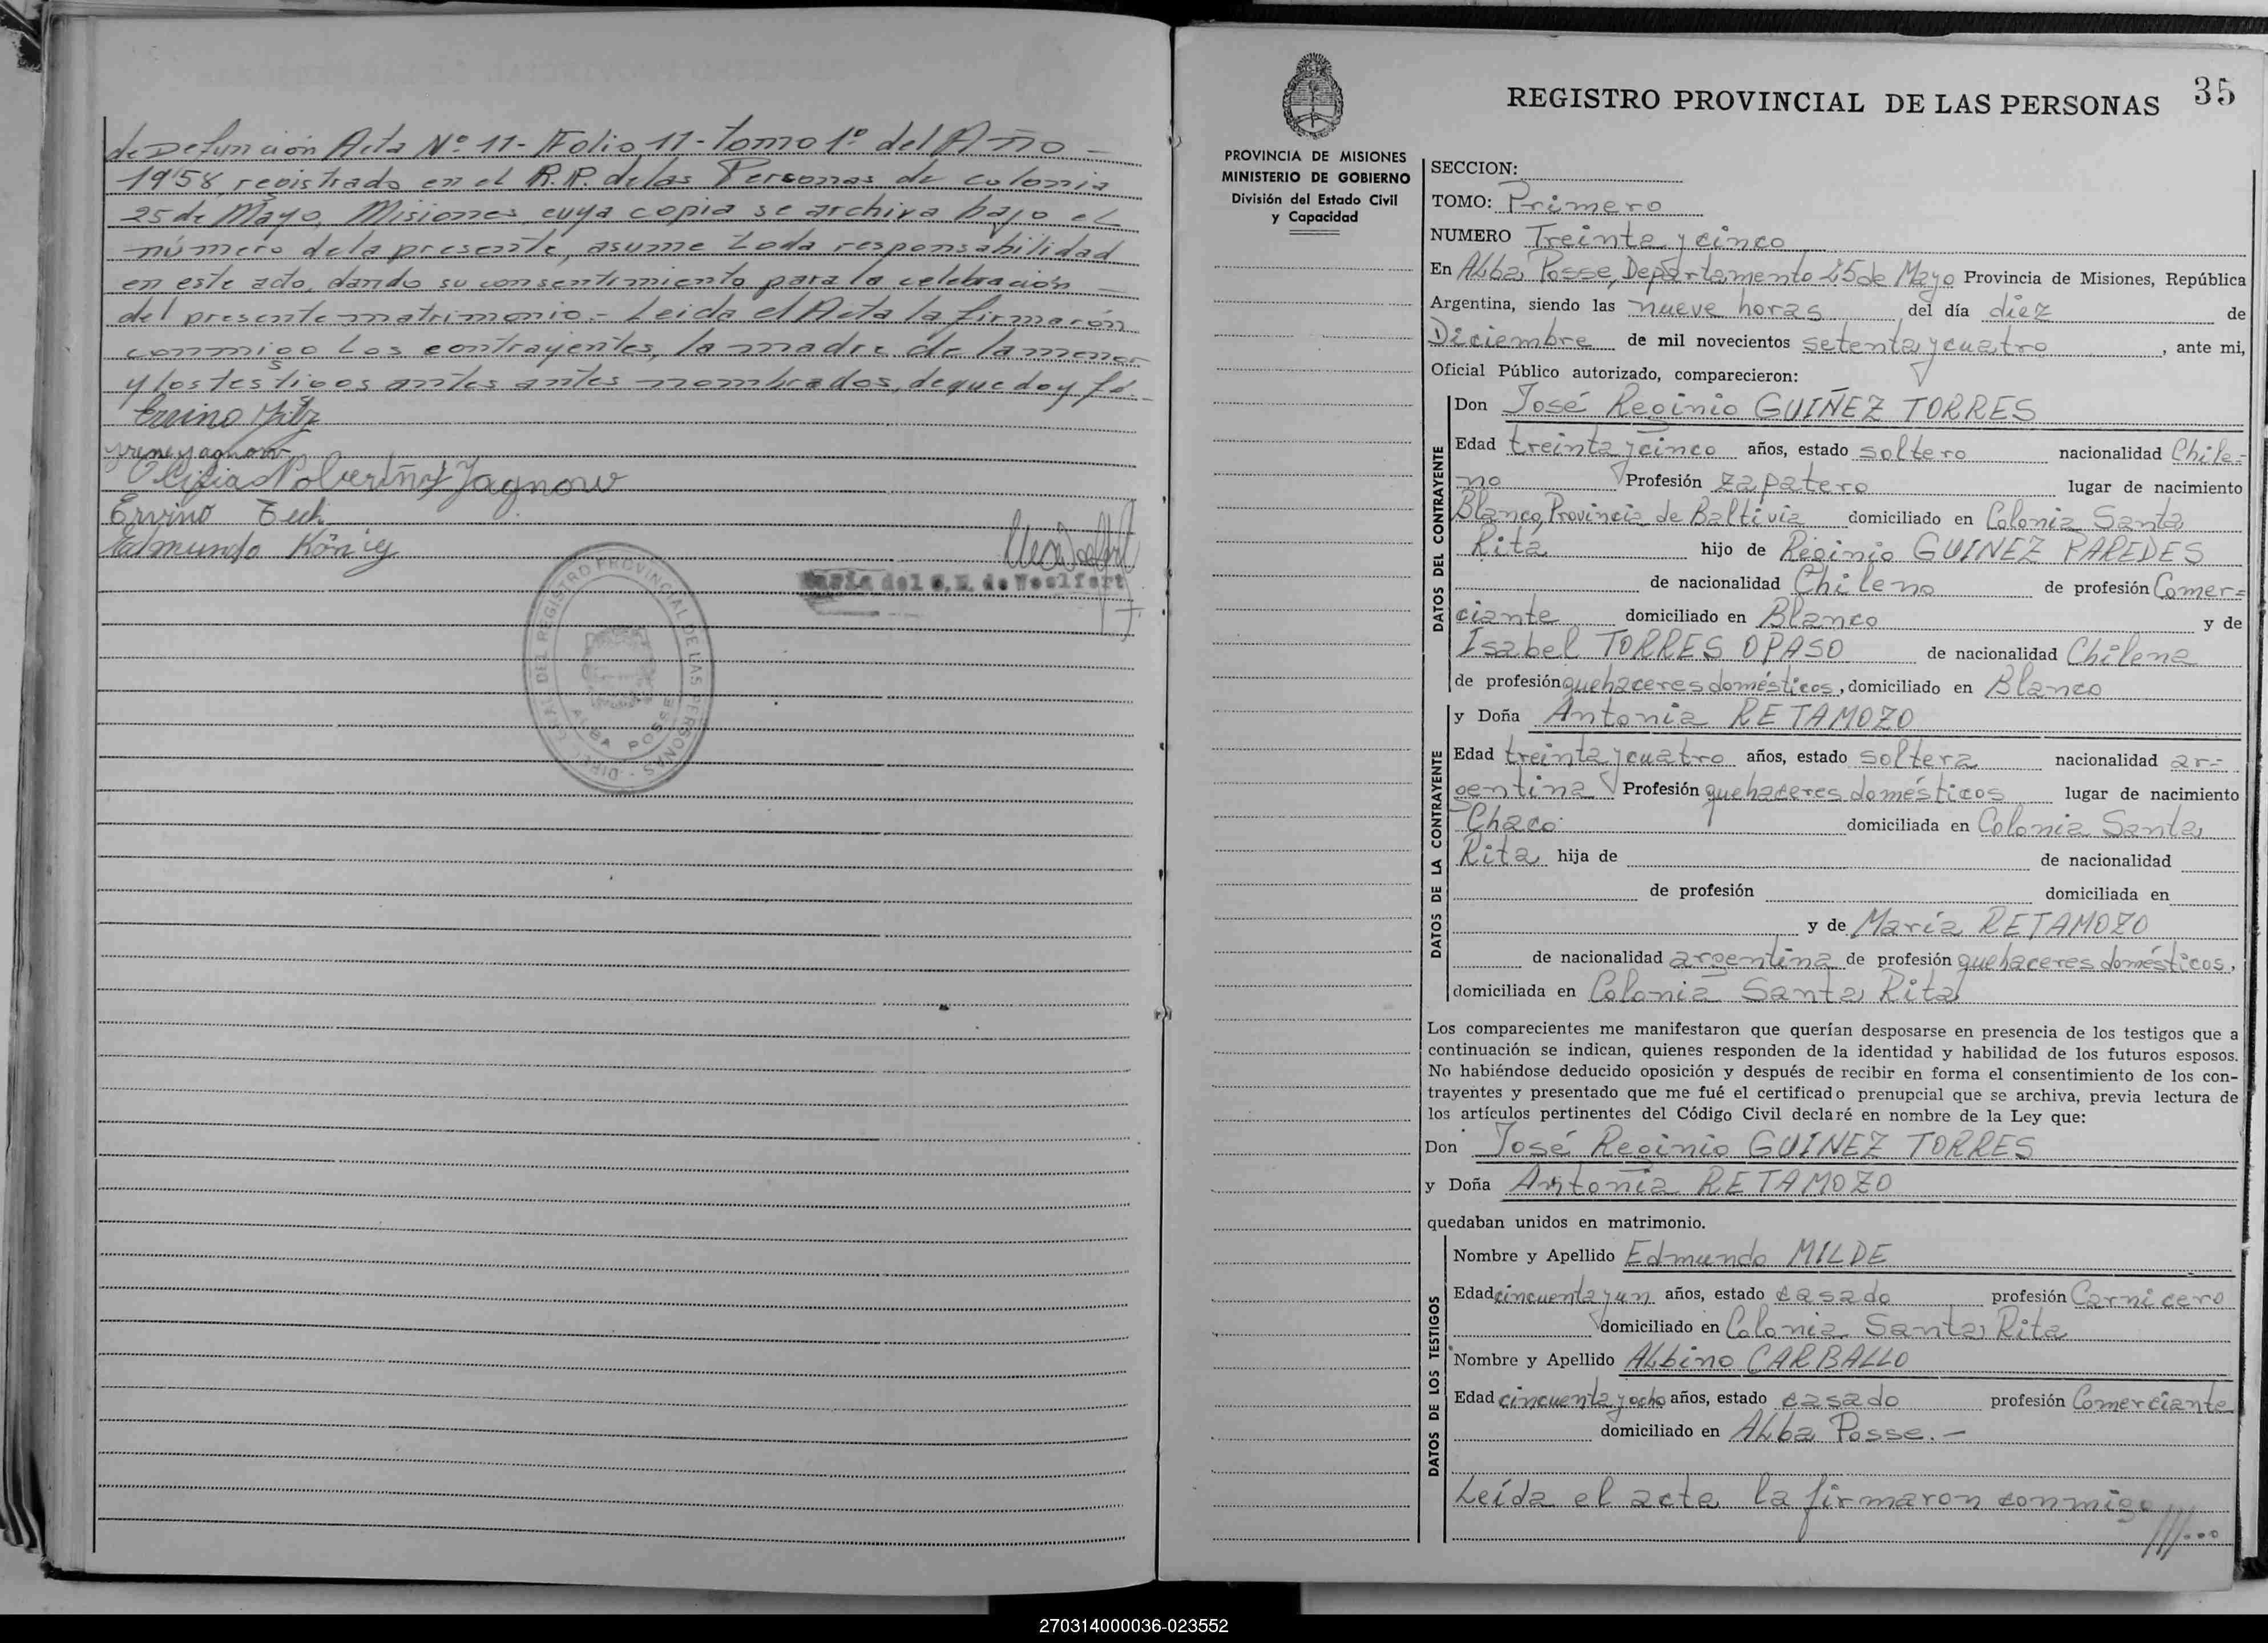 de Defunción Acta Nº 11- Folio 11- tomo 1º del Año —
1958, registrado en el R.P. de las Personas de colonia
25 de Mayo, Misiones, cuya copia se archiva bajo el
número de la presente, asume toda responsabilidad
en este acto, dando su consentimiento para la celebración —
del presente matrimonio.- Leida el Acta la firmarón
conmigo Los contrayentes, la madre de la menor
y los testigos antes antes nombrados, de que doy fé.-
Ervino
Irene Jagnow
Jagnow
Ervino
Edmundo König
María del C. de
DEL REGISTRO PROVINCIAL DE LAS PERSONAS
ALBA POSSE
35
REGISTRO PROVINCIAL DE LAS PERSONAS
PROVINCIA DE MISIONES
MINISTERIO DE GOBIERNO
División del Estado Civil
y Capacidad
SECCION:
TOMO: Primero
NUMERO Treinta y cinco
En Alba Posse, Departamento 25 de Mayo Provincia de Misiones, República
Argentina, siendo las nueve horas del día diez de
Diciembre de mil novecientos setenta y cuatro, ante mi,
Oficial Público autorizado, comparecieron:
DATOS DEL CONTRAYENTE
Don José Reginio GUIÑEZ TORRES
Edad treinta y cinco años, estado soltero nacionalidad Chile=
no Profesión zapatero lugar de nacimiento
Blanco, Provincia de Baltivia domiciliado en Colonia Santa
Rita hijo de Reginio GUINEZ PAREDES
de nacionalidad Chileno de profesión Comer=
ciante domiciliado en Blanco y de
Isabel TORRES OPASO de nacionalidad Chilena
de profesión quehaceres domésticos, domiciliado en Blanco
DATOS DE LA CONTRAYENTE
y Doña Antonia RETAMOZO
Edad treinta y cuatro años, estado soltera nacionalidad ar=
gentina Profesión quehaceres domésticos lugar de nacimiento
Chaco domiciliada en Colonia Santa
Rita hija de de nacionalidad
de profesión domiciliada en
y de María RETAMOZO
de nacionalidad argentina de profesión quehaceres domésticos,
domiciliada en Colonia Santa Rita
Los comparecientes me manifestaron que querían desposarse en presencia de los testigos que a
continuación se indican, quienes responden de la identidad y habilidad de los futuros esposos.
No habiéndose deducido oposición y después de recibir en forma el consentimiento de los con-
trayentes y presentado que me fué el certificado prenupcial que se archiva, previa lectura de
los artículos pertinentes del Código Civil declaré en nombre de la Ley que:
Don José Reginio GUINEZ TORRES
y Doña Antonia RETAMOZO
quedaban unidos en matrimonio.
DATOS DE LOS TESTIGOS
Nombre y Apellido Edmundo MILDE
Edad cincuenta y un años, estado casado profesión Carnicero
domiciliado en Colonia Santa Rita
Nombre y Apellido Albino CARBALLO
Edad cincuenta y ocho años, estado casado profesión Comerciante
domiciliado en Alba Posse.-
Leída el acta la firmaron conmigo
///...
270314000036-023552